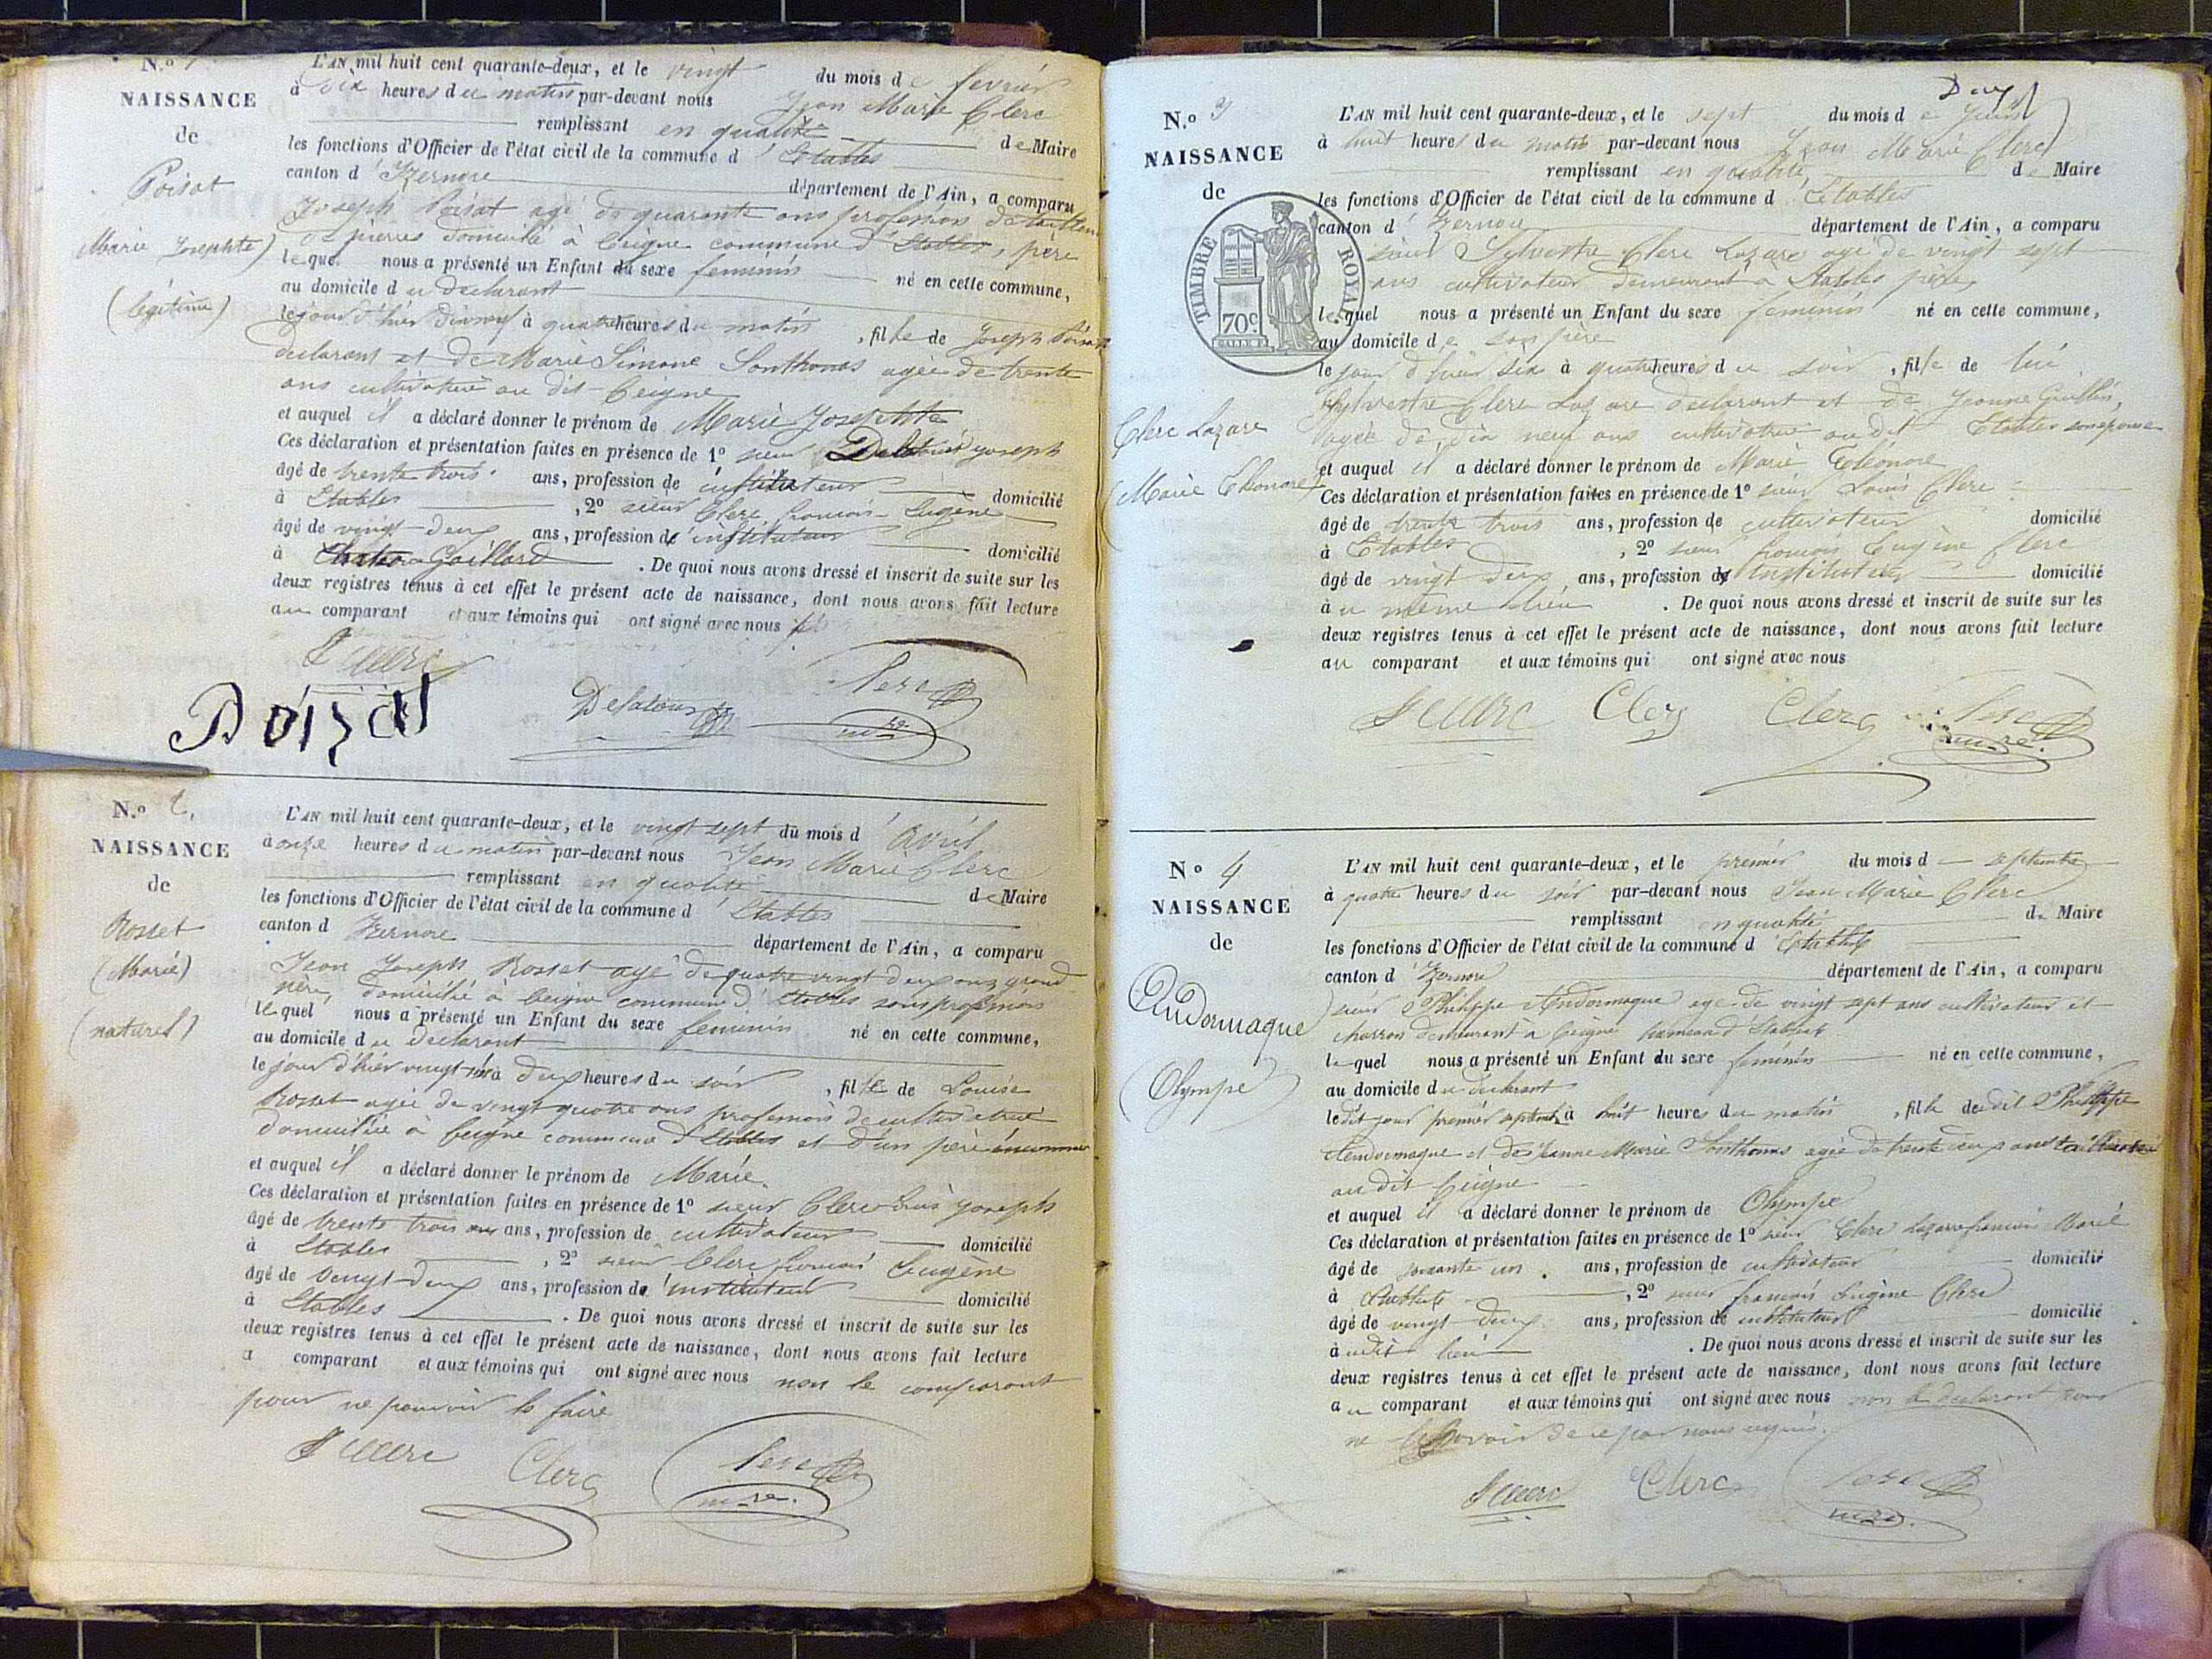 N.o 1
NAISSANCE
de
Poisat
Marie Josephte)
(légitime)
L'AN mil huit cent quarante-deux, et le vingt du mois de fevrier
à dix heures du matin par-devant nous Jean Marie Clerc
remplissant en qualité de Maire
les fonctions d'Officier de l'état civil de la commune d'Etables
canton d'Izernore département de l'Ain, a comparu
Joseph Poisat agé de quarante ans profession de tailleur
de pierres domicilié à Ceigne commune d'Etables, père
lequel nous a présenté un Enfant du sexe feminin né en cette commune,
au domicile du declarant
le jour d'hier dix neuf à quatre heures du matin, fille de Joseph Poisat
declarant et de Marie Simone Sonthonas agée de trente
ans cultivatrice au dit Ceigne
et auquel il a déclaré donner le prénom de Marie Josephte
Ces déclaration et présentation faites en présence de 1o sieur Delatour Joseph
âgé de trente trois ans, profession de instituteur domicilié
à Etables, 2o sieur Clerc françois Eugène
âgé de vingt-deux ans, profession de instituteur domicilié
à Chateau Gaillard. De quoi nous avons dressé et inscrit de suite sur les
deux registres tenus à cet effet le présent acte de naissance, dont nous avons fait lecture
au comparant et aux témoins qui ont signé avec nous
Poizat
Delatour
Clerc
mre
N.o 2.
NAISSANCE
de
Rosset
(Marie)
(naturel)
L'AN mil huit cent quarante-deux, et le vingt sept du mois d'avril
à onze heures du matin par-devant nous Jean Marie Clerc
remplissant en qualité de Maire
les fonctions d'Officier de l'état civil de la commune d'Etables
canton d'Izernore département de l'Ain, a comparu
Jean Joseph Rosset agé de quatre vingt deux ans grand
père, domicilié à Ceigne commune d'Etables sans profession
lequel nous a présenté un Enfant du sexe feminin né en cette commune,
au domicile du declarant
le jour d'hier vingt six à deux heures du soir, fille de Louise
Rosset agée de vingt quatre ans profession de cultivatrice
domiciliée à Ceigne commune d'Etables et d'un père inconnu
et auquel il a déclaré donner le prénom de Marie.
Ces déclaration et présentation faites en présence de 1o sieur Clerc Louis Joseph
âgé de trente trois ans ans, profession de cultivateur domicilié
à Etables, 2o sieur Clerc françois Eugène
âgé de vingt-deux ans, profession de instituteur domicilié
à Etables. De quoi nous avons dressé et inscrit de suite sur les
deux registres tenus à cet effet le présent acte de naissance, dont nous avons fait lecture
a comparant et aux témoins qui ont signé avec nous non le comparant
pour ne pouvoir le faire
Clerc
Clerc
mre.
Deux
N.o 3
NAISSANCE
de
Clerc Lazare
(Marie Eléonore)
TIMBRE ROYAL
70c
L'AN mil huit cent quarante-deux, et le sept du mois de Juin
à huit heures du matin par-devant nous Jean Marie Clerc
remplissant en qualité de Maire
les fonctions d'Officier de l'état civil de la commune d'Etables
canton d'Izernore département de l'Ain, a comparu
sieur Sylvestre Clerc Lazare agé de vingt sept
ans cultivateur demeurant à Etables père
lequel nous a présenté un Enfant du sexe feminin né en cette commune,
au domicile de son père
le jour d'hier six à quatre heures du soir, fille de lui
Sylvestre Clerc Lazare declarant et de Jeanne Guillin,
agée de dix neuf ans cultivatrice au dit Etables son epouse
et auquel il a déclaré donner le prénom de Marie Eléonore
Ces déclaration et présentation faites en présence de 1o sieur Louis Clerc
âgé de trente trois ans, profession de cultivateur domicilié
à Etables, 2o sieur françois Eugène Clerc
âgé de vingt deux ans, profession de Instituteur domicilié
à u même lieu. De quoi nous avons dressé et inscrit de suite sur les
deux registres tenus à cet effet le présent acte de naissance, dont nous avons fait lecture
au comparant et aux témoins qui ont signé avec nous
Clerc Clerc Clerc
mre.
No 4
NAISSANCE
de
Andormaque
(Olympe)
L'AN mil huit cent quarante-deux, et le premier du mois d septembre
à quatre heures du soir par-devant nous Jean Marie Clerc
remplissant en qualité de Maire
les fonctions d'Officier de l'état civil de la commune d'Etables
canton d'Izernore département de l'Ain, a comparu
sieur Philippe Andormaque agé de vingt sept ans cultivateur et
charron demeurant à Ceigne hameau d'Etables
lequel nous a présenté un Enfant du sexe feminin né en cette commune,
au domicile du declarant
le dit jour premier septembre à huit heures du matin, fille du dit Philippe
Andormaque et de Jeanne Marie Sonthonas agée de trente deux ans
au dit Ceigne
et auquel il a déclaré donner le prénom de Olympe
Ces déclaration et présentation faites en présence de 1o sieur Clerc Lazare françois Marie
âgé de soixante un ans, profession de cultivateur domicilié
à Etables, 2o sieur françois Eugène Clerc
âgé de vingt-deux ans, profession de instituteur domicilié
à udit lieu. De quoi nous avons dressé et inscrit de suite sur les
deux registres tenus à cet effet le présent acte de naissance, dont nous avons fait lecture
au comparant et aux témoins qui ont signé avec nous non le declarant pour
ne le savoir de ce par nous requis.
Clerc
Clerc
mre.